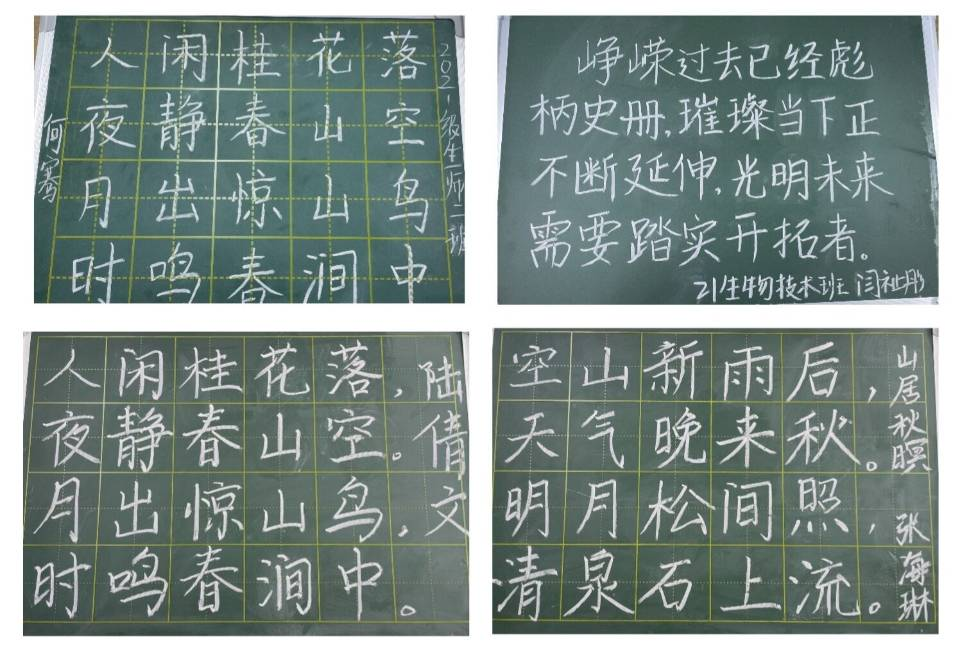 人闲桂花落
夜静春山空
月出惊山鸟
时鸣春涧中
2021级生师二班
何骞
峥嵘过去已经彪
柄史册,璀璨当下正
不断延伸,光明未来
需要踏实开拓者。
21生物技术班 闫祉彤
人闲桂花落,
夜静春山空。
月出惊山鸟,
时鸣春涧中。
陆倩文
空山新雨后,
天气晚来秋。
明月松间照,
清泉石上流。
山居秋暝 张海琳